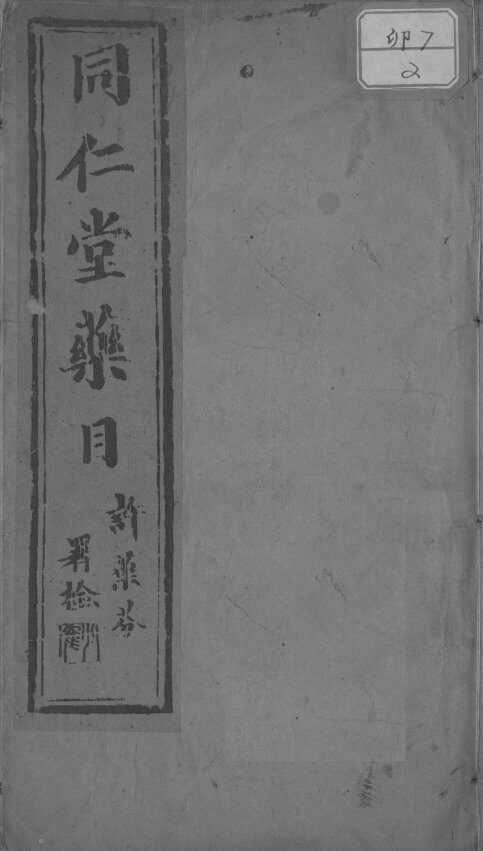 卯7
2
同仁堂藥目
許葉芬
署檢